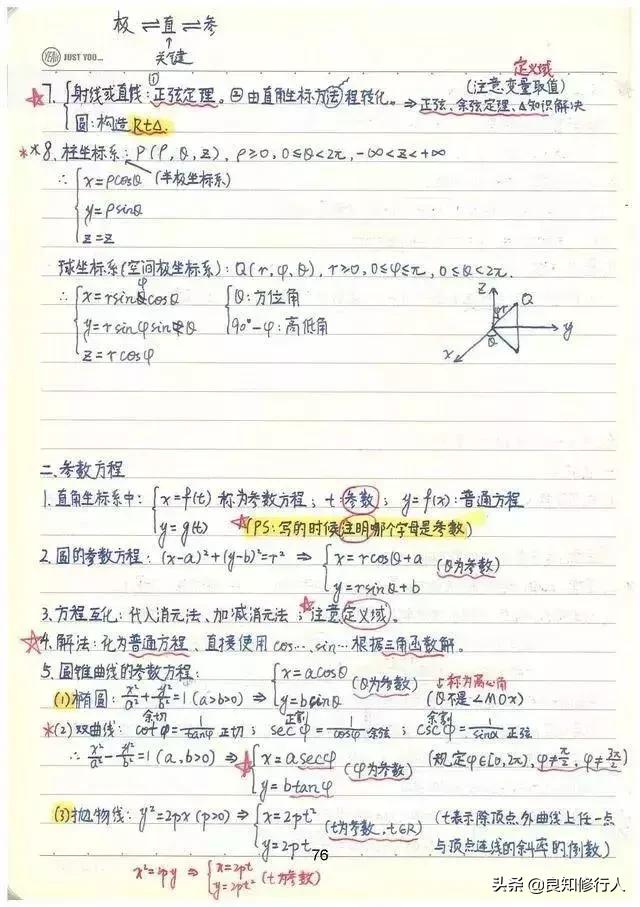 极⇌直⇌参
↑
关键
YEAH JUST YOU...
定义域
☆7. { 射线或直线:①正弦定理。②由直角坐标方程转化。(注意变量取值) ⇒ 正弦、余弦定理、△知识解决
圆:构造Rt△.
**8. 柱坐标系:P(ρ,θ,z), ρ≥0, 0≤θ<2π, -∞<z<+∞
∴ { x=ρcosθ (半极坐标系)
y=ρsinθ
z=z
球坐标系(空间极坐标系):Q(r,φ,θ), r≥0, 0≤φ≤π, 0≤θ<2π.
∴ { x=rsinφcosθ { θ:方位角
y=rsinφsinθ 90°-φ:高低角
z=rcosφ
z Q φ r θ x y
二.参数方程
1.直角坐标系中: { x=f(t) 称为参数方程; t:参数; y=f(x):普通方程
y=g(t) ☆(PS:写的时候注明哪个字母是参数)
2.圆的参数方程: (x-a)²+(y-b)²=r² ⇒ { x=rcosθ+a (θ为参数)
y=rsinθ+b
3.方程互化:代入消元法、加减消元法;☆注意定义域。
☆4.解法:化为普通方程、直接使用cos…、sin…根据三角函数解。
5.圆锥曲线的参数方程:
(1)椭圆: x²/a²+y²/b²=1(a>b>0) ⇒ { x=acosθ (θ为参数) 称为离心角
y=bsinθ (θ不是∠MOX)
*(2)双曲线: 余切 cotφ=1/tanφ 正切; 正割 secφ=1/cosφ 余弦; 余割 cscφ=1/sinα 正弦
∴ x²/a²-y²/b²=1(a,b>0) ⇒ ☆{ x=asecφ (φ为参数) (规定φ∈[0,2π), φ≠π/2, φ≠3π/2)
y=btanφ
(3)抛物线: y²=2px(p>0) ⇒ { x=2pt² (t为参数,t∈R) (t表示除顶点外曲线上任一点
y=2pt 与顶点连线的斜率的倒数)
76
x²=2py ⇒ { x=2pt
y=2pt² (t为参数)
头条 @良知修行人